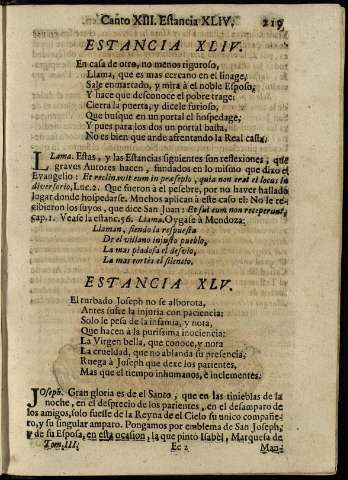 Canto XIII. Estancia XLIV. 219
ESTANCIA XLIV.
En casa de otro, no menos riguroso,
Llama, que es mas cercano en el linage;
Sale enmartado, y mira à el noble Esposo,
Y hace que desconoce el pobre trage:
Cierra la puerta, y dicele furioso,
Que busque en un portal el hospedage;
Y pues para los dos un portal basta,
No es bien que ande afrentando la Real casta.
Llama. Estas, y las Estancias siguientes son reflexiones, que
graves Autores hacen, fundados en lo mismo que dixo el
Evangelio: Et reclinavit eum in præsepio, quia non erat ei locus in
diversorio, Luc. 2. Que fueron à el pesebre, por no haver hallado
lugar donde hospedarse. Muchos aplican à este caso el: No le re-
cibieron los suyos, que dice San Juan: Et sui eum non receperunt,
cap. 1. Vease la estanc. 56. Llama. Oygase à Mendoza:
Llaman, siendo la respuesta
De el villano injusto pueblo,
La mas piadosa el desvío,
La mas cortès el silencio.
ESTANCIA XLV.
El turbado Joseph no se alborota,
Antes sufre la injuria con paciencia;
Solo le pesa de la infamia, y nota,
Que hacen à la purissima inociencia:
La Virgen bella, que conoce, y nota
La crueldad, que no ablanda su presencia,
Ruega à Joseph que dexe los parientes,
Mas que el tiempo inhumanos, è inclementes.
Joseph. Gran gloria es de el Santo, que en las tinieblas de la
noche, en el desprecio de los parientes, en el desamparo de
los amigos, solo fuesse de la Reyna de el Cielo su unico compañe-
ro, y su singular amparo. Pongamos por emblema de San Joseph,
y de su Esposa, en esta ocasion, la que pintò Isabèl, Marquesa de
Tom. III. Ee 2 Man-